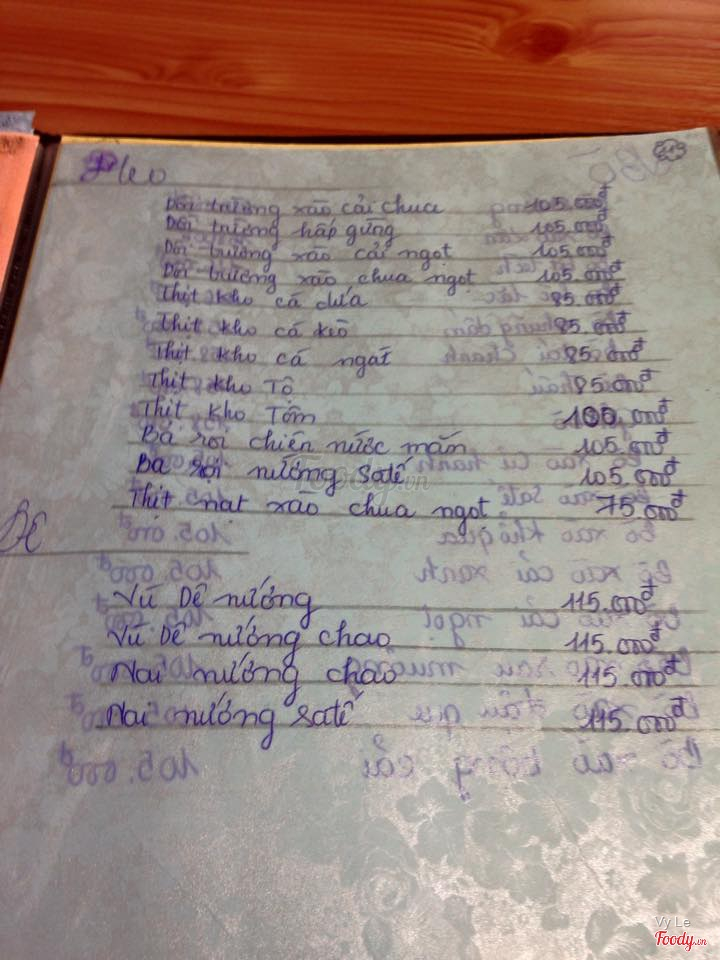 Heo
Dồi trường xào cải chua 105.000đ
Dồi trường hấp gừng 105.000đ
Dồi trường xào cải ngọt 105.000đ
Dồi trường xào chua ngọt 105.000đ
Thịt kho cá dứa 85.000đ
Thịt kho cá kèo 85.000đ
Thịt kho cá ngát 85.000đ
Thịt kho Tộ 85.000đ
Thịt kho Tôm 100.000đ
Ba rọi chiên nước mắm 105.000đ
Ba rọi nướng Satế 105.000đ
Thịt nạt xào chua ngọt 75.000đ
Dê
Vú Dê nướng 115.000đ
Vú Dê nướng chao 115.000đ
Nai nướng chao 115.000đ
Nai nướng Satế 115.000đ
Vy Le
Foody.vn